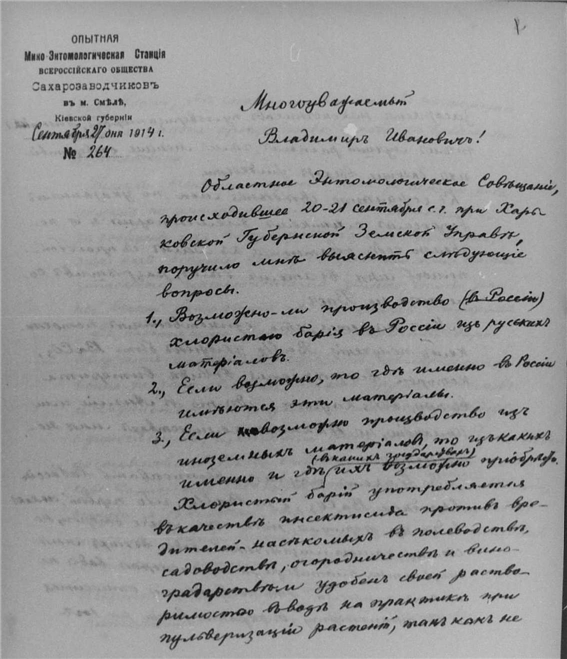 ОПЫТНАЯ
Мико-Энтомологическая Станція
ВСЕРОССІЙСКАГО ОБЩЕСТВА
Сахарозаводчиковъ
въ м. Смѣлѣ,
Кіевской губерніи
Сентября 27 дня 1914 г.
№ 264
Многоуважаемый
Владимиръ Ивановичъ!
Областное Энтомологическое Совѣщаніе,
происходившее 20-21 сентября с.г. при Харь-
ковской Губернской Земской Управѣ,
поручило мнѣ выяснить слѣдующіе
вопросы.
1., Возможно-ли производство (въ Россіи)
хлористаго барія въ Россіи изъ руськихъ
матеріаловъ.
2., Если возможно, то гдѣ именно въ Россіи
имѣются эти матеріалы.
3., Если возможно производство изъ
иноземныхъ матеріаловъ, то изъ какихъ
именно и гдѣ (въ какихъ государствахъ) ихъ возможно пріобрѣсть.
Хлористый барій употребляется
въ качествѣ инсектисида противъ вре-
дителей-насѣкомыхъ въ полеводствѣ,
садоводствѣ, огородничествѣ и вино-
градарствѣ и удобенъ своей раство-
римостью въ водѣ на практикѣ при
пульверизаціи растеній, такъ какъ не